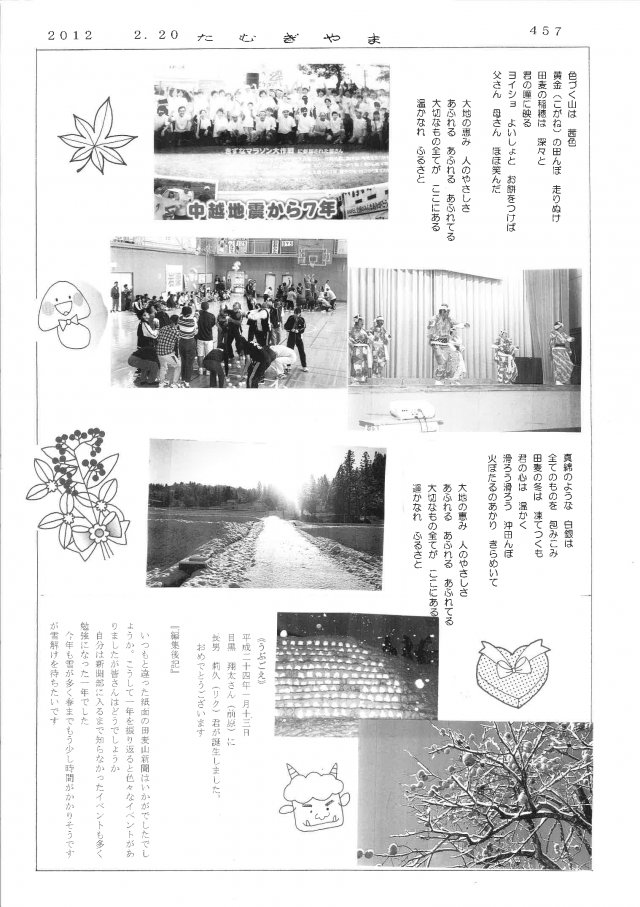 2012 2.20 たむぎやま 457
色づく山は 茜色
黄金(こがね)の田んぼ 走りぬけ
田麦の稲穂は 深々と
君の瞳に映る
ヨイショ よいしょと お餅をつけば
父さん 母さん ほほ笑んだ
大地の恵み 人のやさしさ
あふれる あふれる あふれてる
大切なもの全てが ここにある
温かなれ ふるさと
きずなマラソン大作戦
中越地震から7年
真綿のような 白銀は
全てのものを 包みこみ
田麦の冬は 凍てつくも
君の心は 温かく
滑ろう滑ろう 沖田んぼ
火ぼたるのあかり きらめいて
大地の恵み 人のやさしさ
あふれる あふれる あふれてる
大切なもの全てが ここにある
温かなれ ふるさと
《うぶごえ》
平成二十四年一月十三日
目黒 翔太さん(前原)に
長男 莉久(リク)君が誕生しました。
おめでとうございます
『編集後記』
いつもと違った紙面の田麦山新聞はいかがでしたでし
ょうか。こうして一年を振り返ると色々なイベントがあ
りましたが皆さんはどうでしょうか
自分は新聞部に入るまで知らなかったイベントも多く
勉強になった一年でした
今年も雪が多く春までもう少し時間がかかりそうです
が雪解けを待ちたいです